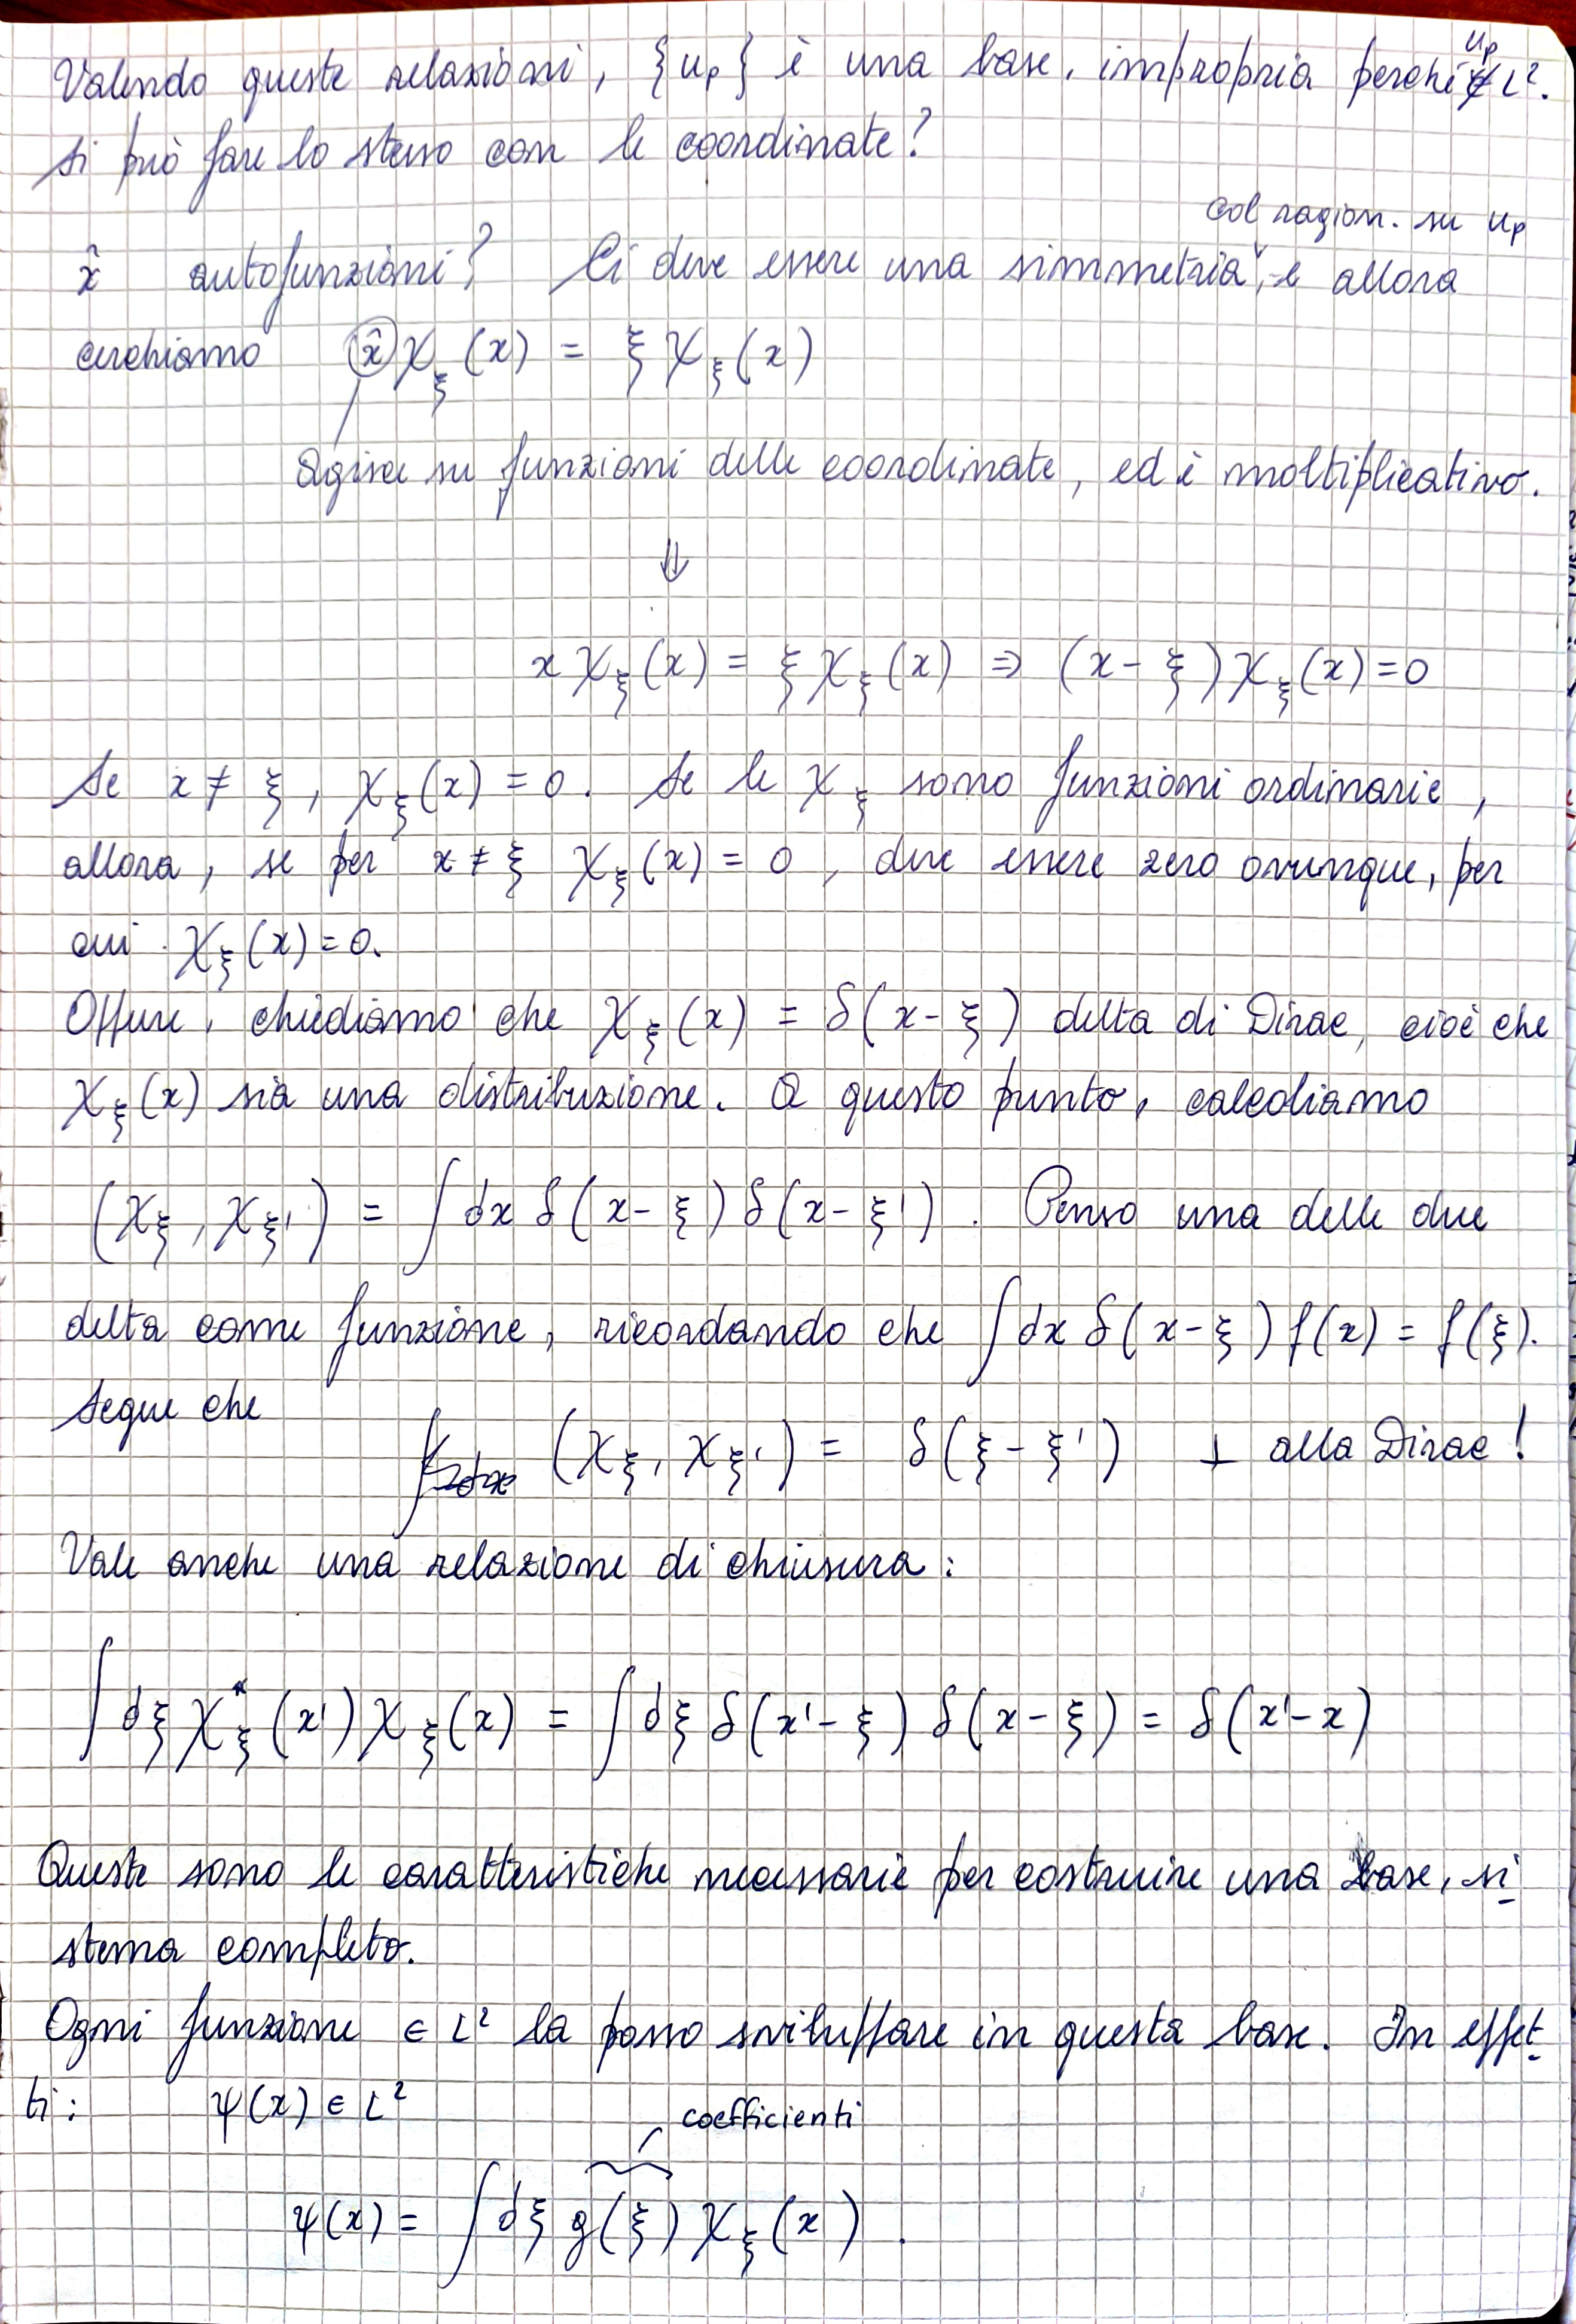 Valendo queste relazioni, {u_p} è una base, impropria perché u_p ∉ L².
Si può fare lo stesso con le coordinate?
col ragion. su u_p
x̂ autofunzioni? Ci deve essere una simmetria, e allora
cerchiamo x̂ χ_ξ(x) = ξ χ_ξ(x)
Agisce su funzioni delle coordinate, ed è moltiplicativo.
⇓
x χ_ξ(x) = ξ χ_ξ(x) ⇒ (x - ξ) χ_ξ(x) = 0
Se x ≠ ξ, χ_ξ(x) = 0. Se le χ_ξ sono funzioni ordinarie,
allora, se per x ≠ ξ χ_ξ(x) = 0, deve essere zero ovunque, per
cui χ_ξ(x) = 0.
Oppure, chiediamo che χ_ξ(x) = δ(x - ξ) delta di Dirac, cioè che
χ_ξ(x) sia una distribuzione. A questo punto, calcoliamo
(χ_ξ, χ_ξ') = ∫ dx δ(x - ξ) δ(x - ξ'). Penso una delle due
delta come funzione, ricordando che ∫ dx δ(x - ξ) f(x) = f(ξ).
Segue che
(χ_ξ, χ_ξ') = δ(ξ - ξ') ⊥ alla Dirac!
Vale anche una relazione di chiusura:
∫ dξ χ*_ξ(x') χ_ξ(x) = ∫ dξ δ(x' - ξ) δ(x - ξ) = δ(x' - x)
Queste sono le caratteristiche necessarie per costruire una base, si
stema completo.
Ogni funzione ∈ L² la posso sviluppare in questa base. In effet
ti: ψ(x) ∈ L²
coefficienti
ψ(x) = ∫ dξ g(ξ) χ_ξ(x).